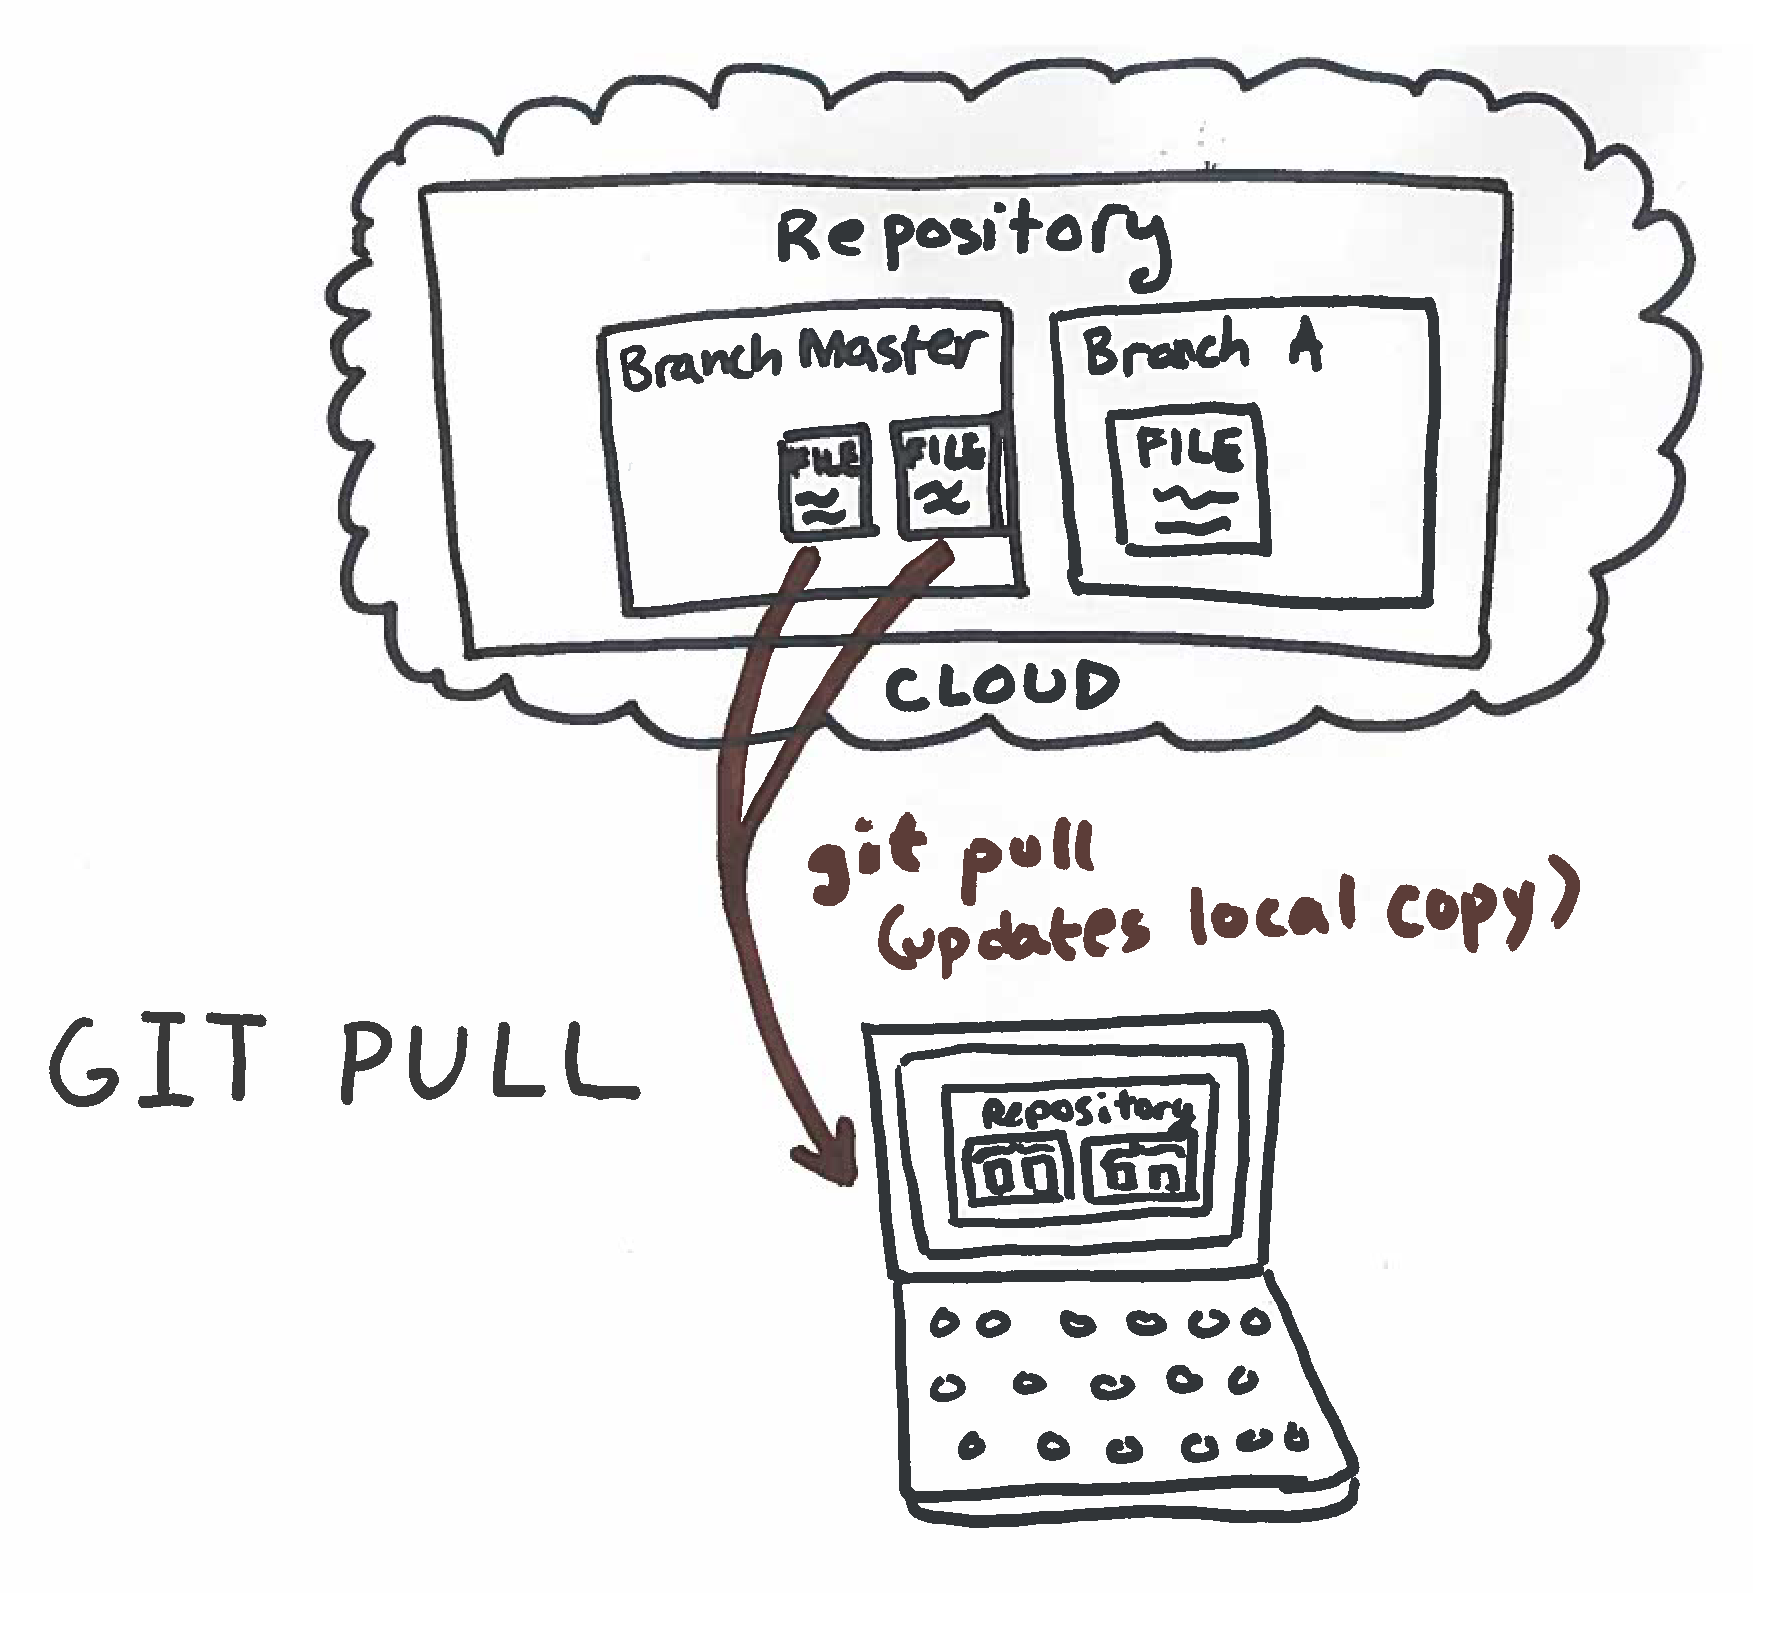 Repository
Branch Master
Branch A
FILE
FILE
FILE
CLOUD
git pull
(updates local copy)
GIT PULL
Repository